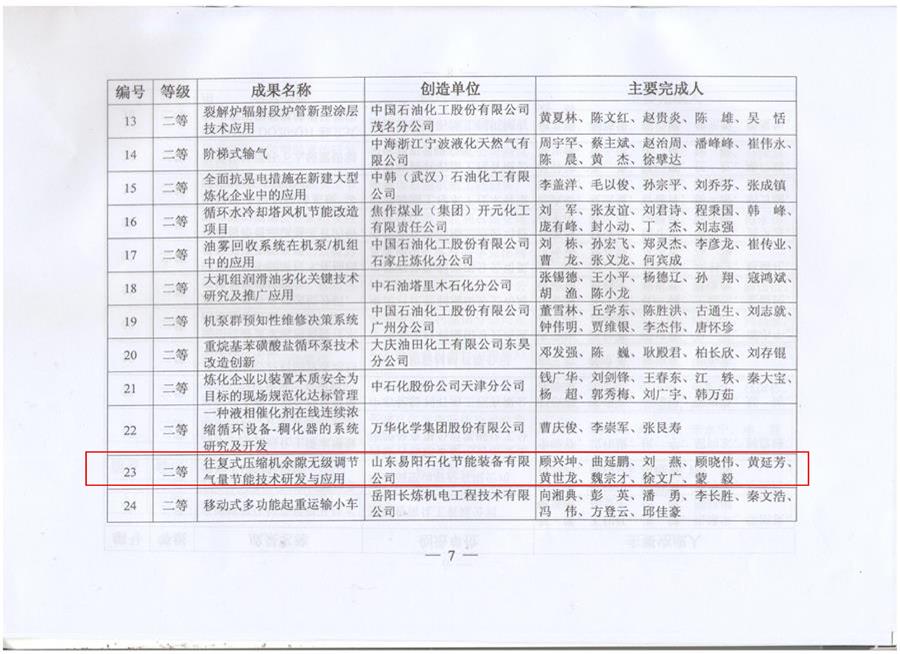 编号 等级 成果名称 创造单位 主要完成人
13 二等 裂解炉辐射段炉管新型涂层 中国石油化工股份有限公司 黄夏林、陈文红、赵贵炎、陈 雄、吴 恬
技术应用 茂名分公司
14 二等 阶梯式输气 中海浙江宁波液化天然气有 周宇罕、蔡主斌、赵治周、潘峰峰、崔伟永、
限公司 陈 晨、黄 杰、徐擘达
15 二等 全面抗晃电措施在新建大型 中韩（武汉）石油化工有限 李盖洋、毛以俊、孙宗平、刘乔芬、张成镇
炼化企业中的应用 公司
16 二等 循环水冷却塔风机节能改造 焦作煤业（集团）开元化工 刘 军、张友谊、刘君诗、程秉国、韩 峰、
项目 有限责任公司 庞有峰、封小动、丁 杰、刘志强
17 二等 油雾回收系统在机泵/机组 中国石油化工股份有限公司 刘 栋、孙宏飞、郑灵杰、李彦龙、崔传业、
中的应用 石家庄炼化分公司 曹 龙、张义龙、何宾成
18 二等 大机组润滑油劣化关键技术 中石油塔里木石化分公司 张锡德、王小平、杨德辽、孙 翔、寇鸿斌、
研究及推广应用 胡 渔、陈小龙
19 二等 机泵群预知性维修决策系统 中国石油化工股份有限公司 董雪林、丘学东、陈胜洪、古通生、刘志就、
广州分公司 钟伟明、贾维银、李杰伟、唐怀珍
20 二等 重烷基苯磺酸盐循环泵技术 大庆油田化工有限公司东昊 邓发强、陈 巍、耿殿君、柏长欣、刘存锟
改造创新 分公司
21 二等 炼化企业以装置本质安全为 中石化股份公司天津分公司 钱广华、刘剑锋、王春东、江 轶、秦大宝、
目标的现场规范化达标管理 杨 超、郭秀梅、刘广宇、韩万茹
22 二等 一种液相催化剂在线连续浓 万华化学集团股份有限公司 曹庆俊、李崇军、张艮寿
缩循环设备-稠化器的系统
研究及开发
23 二等 往复式压缩机余隙无级调节 山东易阳石化节能装备有限 顾兴坤、曲延鹏、刘 燕、顾晓伟、黄延芳、
气量节能技术研发与应用 公司 黄世龙、魏宗才、徐文广、蒙 毅
24 二等 移动式多功能起重运输小车 岳阳长炼机电工程技术有限 向湘典、彭 英、潘 勇、李长胜、秦文浩、
公司 冯 伟、方登云、邱佳豪
— 7 —